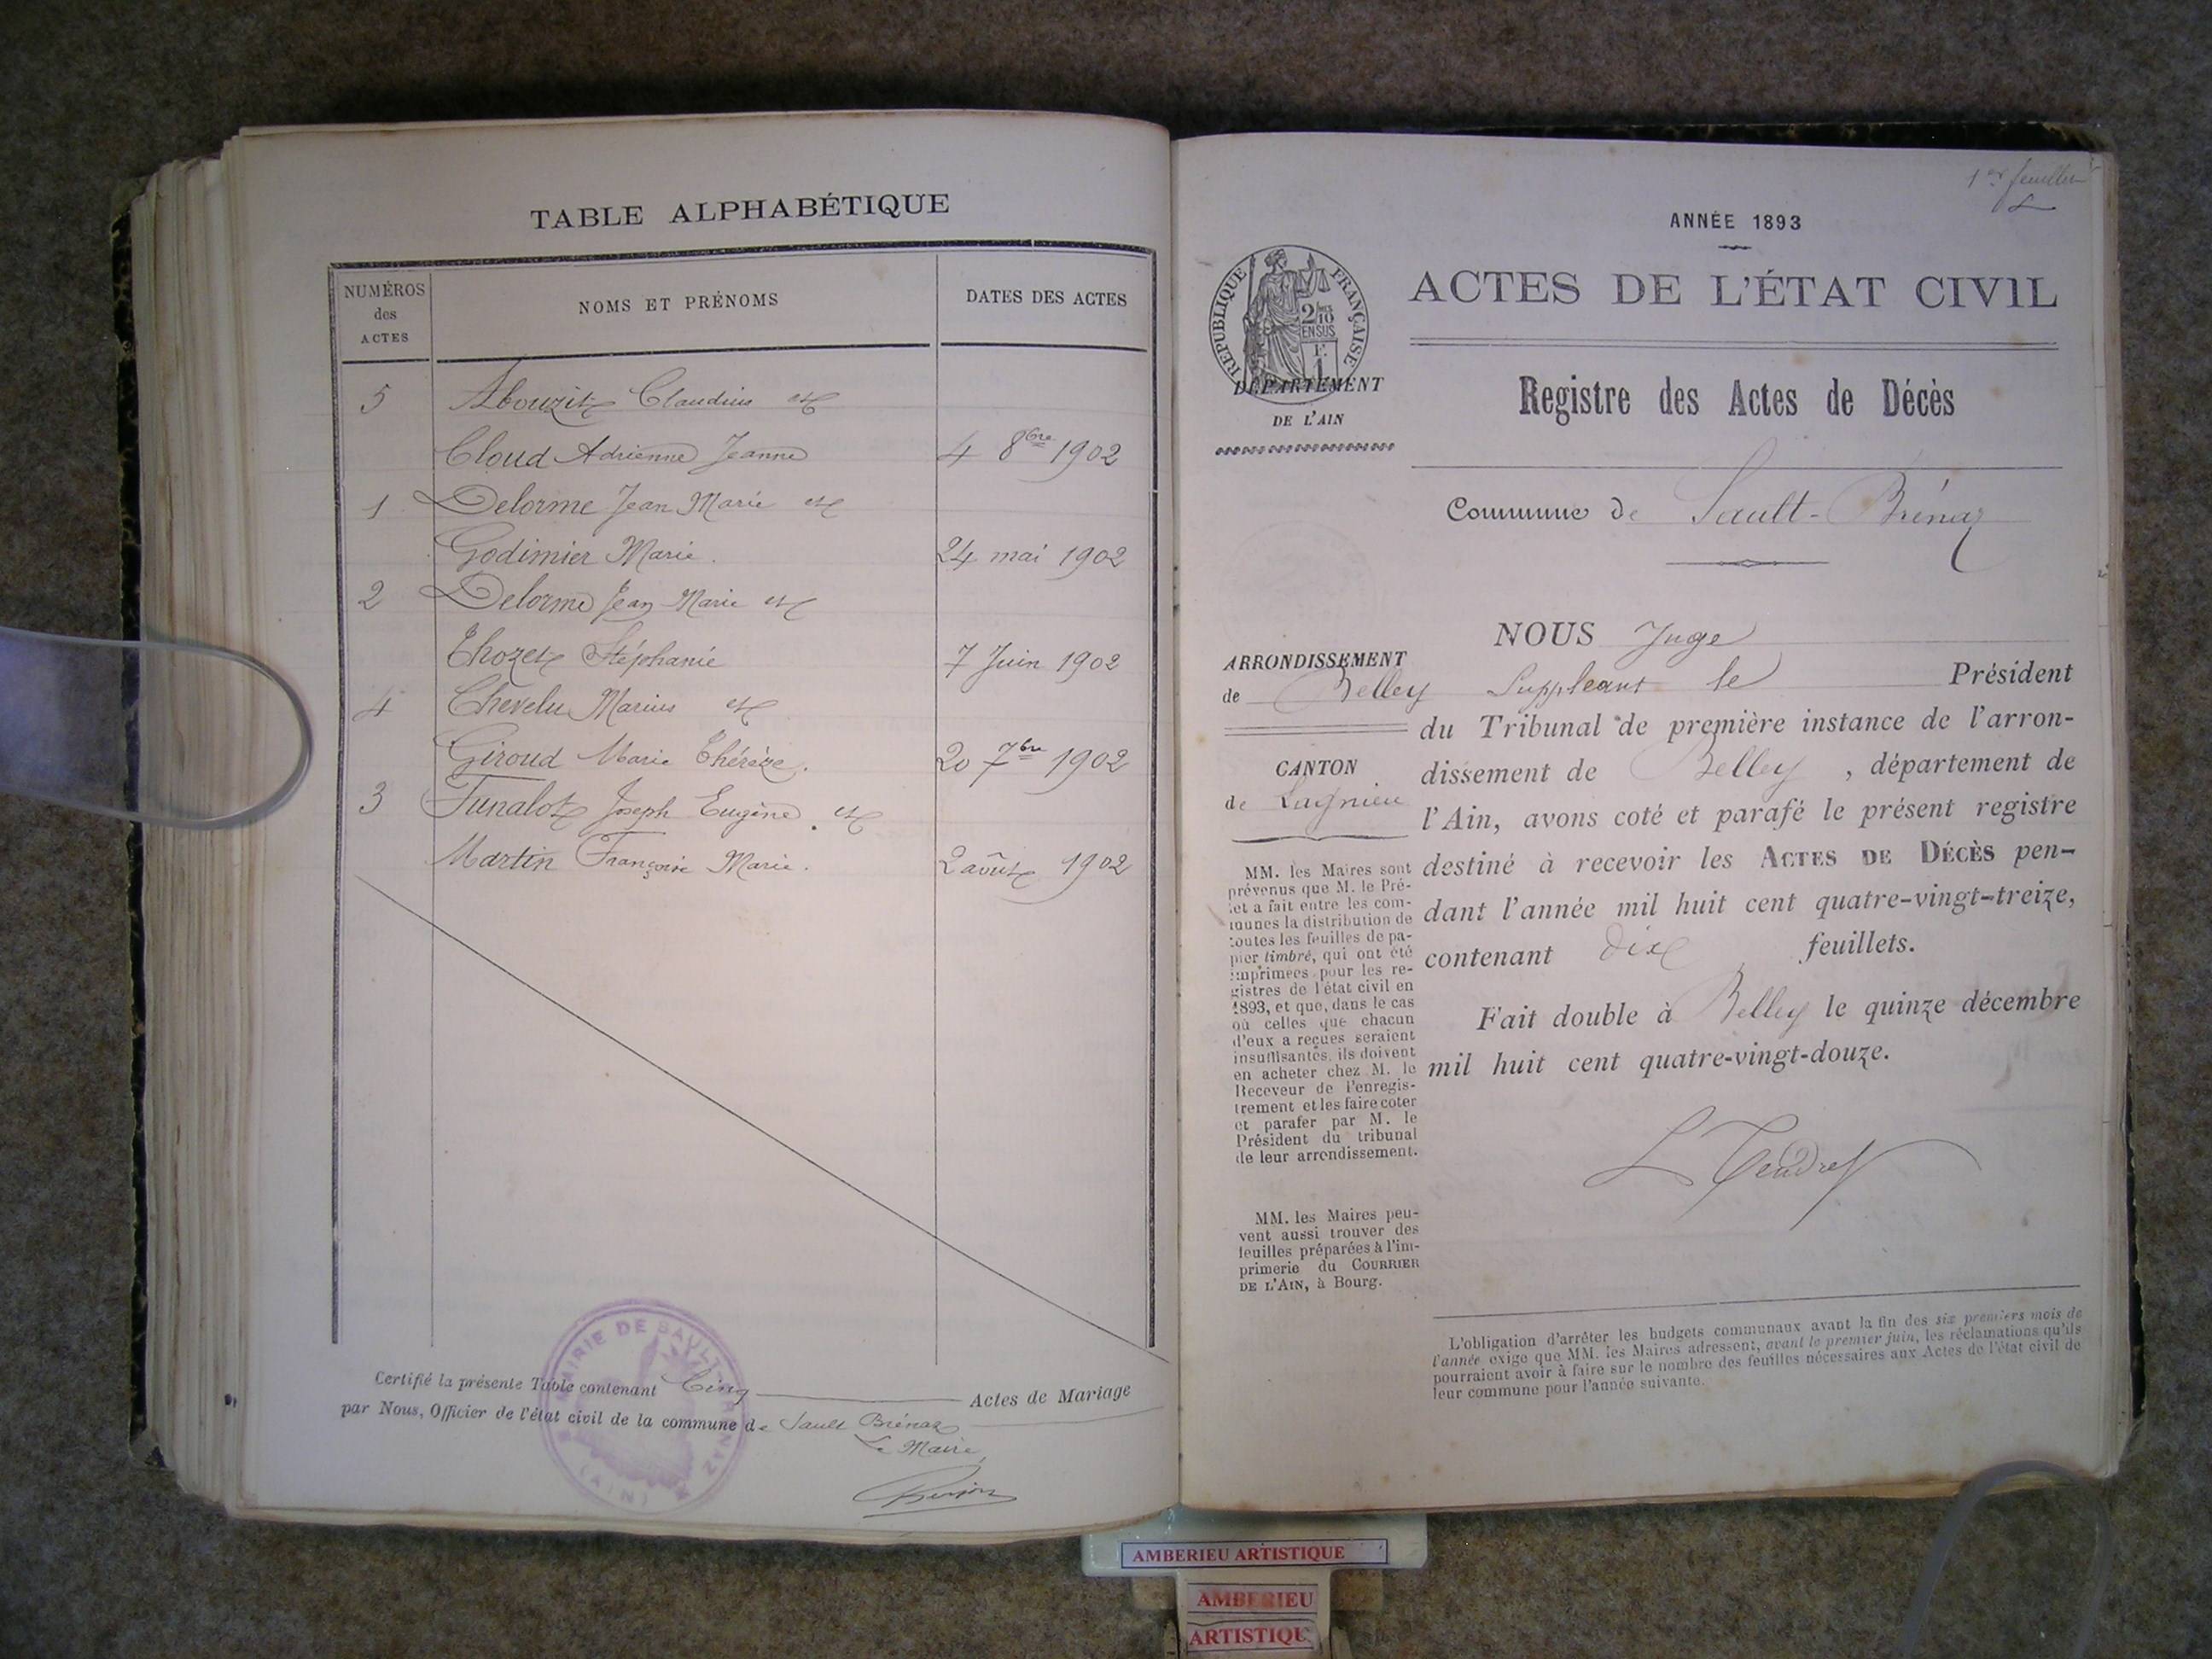 TABLE ALPHABÉTIQUE
NUMÉROS
des
ACTES
NOMS ET PRÉNOMS
DATES DES ACTES
5 Abouzit Claudius et
Cloud Adrienne Jeanne 4 8bre 1902
1 Delorme Jean Marie et
Godimier Marie. 24 mai 1902
2 Delorme Jean Marie et
Thozet Stéphanie 7 Juin 1902
4 Chevelu Marius et
Giroud Marie Thérèze. 20 7bre 1902
3 Junalot Joseph Eugène. et
Martin Françoise Marie. 2 août 1902
Certifié la présente Table contenant Cinq Actes de Mariage
par Nous, Officier de l'état civil de la commune de Sault Brénaz
Le Maire
MAIRIE DE SAULT-BRENAZ
(AIN)
1er feuillet
ANNÉE 1893
ACTES DE L'ÉTAT CIVIL
RÉPUBLIQUE FRANÇAISE
2/10
EN SUS
1 F.
DÉPARTEMENT
DE L'AIN
Registre des Actes de Décès
Commune de Sault-Brénaz
ARRONDISSEMENT
de Belley
CANTON
de Lagnieu
MM. les Maires sont
prévenus que M. le Pré-
fet a fait entre les com-
munes la distribution de
toutes les feuilles de pa-
pier timbré, qui ont été
imprimées pour les re-
gistres de l'état civil en
1893, et que, dans le cas
où celles que chacun
d'eux a reçues seraient
insuffisantes, ils doivent
en acheter chez M. le
Receveur de l'enregis-
trement et les faire coter
et parafer par M. le
Président du tribunal
de leur arrondissement.
MM. les Maires peu-
vent aussi trouver des
feuilles préparées à l'im-
primerie du COURRIER
DE L'AIN, à Bourg.
NOUS Juge
Suppléant le Président
du Tribunal de première instance de l'arron-
dissement de Belley , département de
l'Ain, avons coté et parafé le présent registre
destiné à recevoir les ACTES DE DÉCÈS pen-
dant l'année mil huit cent quatre-vingt-treize,
contenant dix feuillets.
Fait double à Belley le quinze décembre
mil huit cent quatre-vingt-douze.
L Tendret
L'obligation d'arrêter les budgets communaux avant la fin des six premiers mois de
l'année exige que MM. les Maires adressent, avant le premier juin, les réclamations qu'ils
pourraient avoir à faire sur le nombre des feuilles nécessaires aux Actes de l'état civil de
leur commune pour l'année suivante.
AMBERIEU ARTISTIQUE
AMBERIEU
ARTISTIQUE